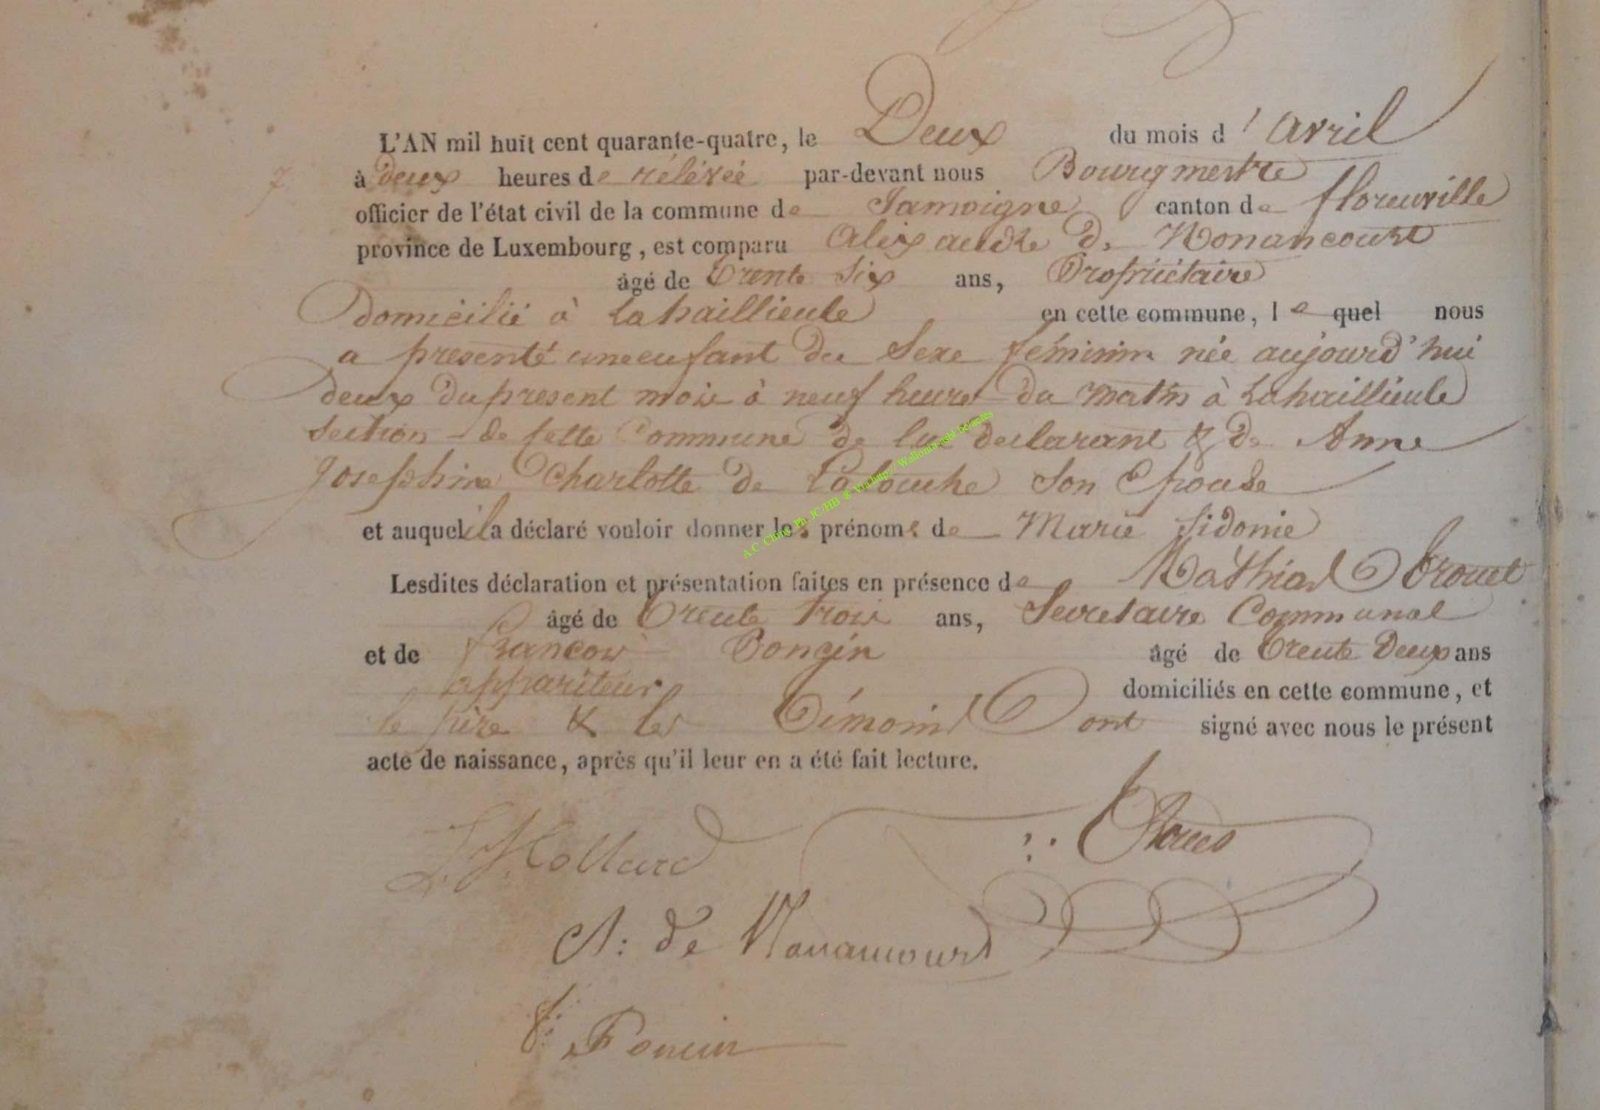 L'AN mil huit cent quarante-quatre, le Deux du mois d'avril
7 à deux heures de rélévée par-devant nous Bourgmestre
officier de l'état civil de la commune de Jamoigne canton de florenville
province de Luxembourg, est comparu Alexandre de Nonancourt
âgé de trente six ans, Propriétaire
domicilié à Lahaillieule en cette commune, le quel nous
a presenté une enfant du Sexe féminin née aujourd'hui
deux du present mois à neuf heures du matin à Lahaillieule
section de cette Commune de lui declarant & de Anne
Josephine Charlotte de Latouche son Epouse
et auquel il a déclaré vouloir donner les prénoms de Marie Sidonie
Lesdites déclaration et présentation faites en présence de Mathias
âgé de trente trois ans, Secretaire Communal
et de francois Poncin âgé de trente Deux ans
appariteur domiciliés en cette commune, et
le père & les témoins ont signé avec nous le présent
acte de naissance, après qu'il leur en a été fait lecture.
A: de Nonancourt
f: Poncin